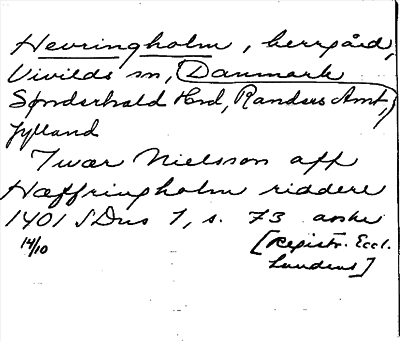 Hevringholm, herrgård,
Vivilds sn, Danmark
Sønderhald Hrd, Randers Amt,
Jylland
Iwar Nielsson aff
Hæffringholm riddere
1401 SDns 1, s. 73
14/10 [Registr. Eccl.
Lundens]